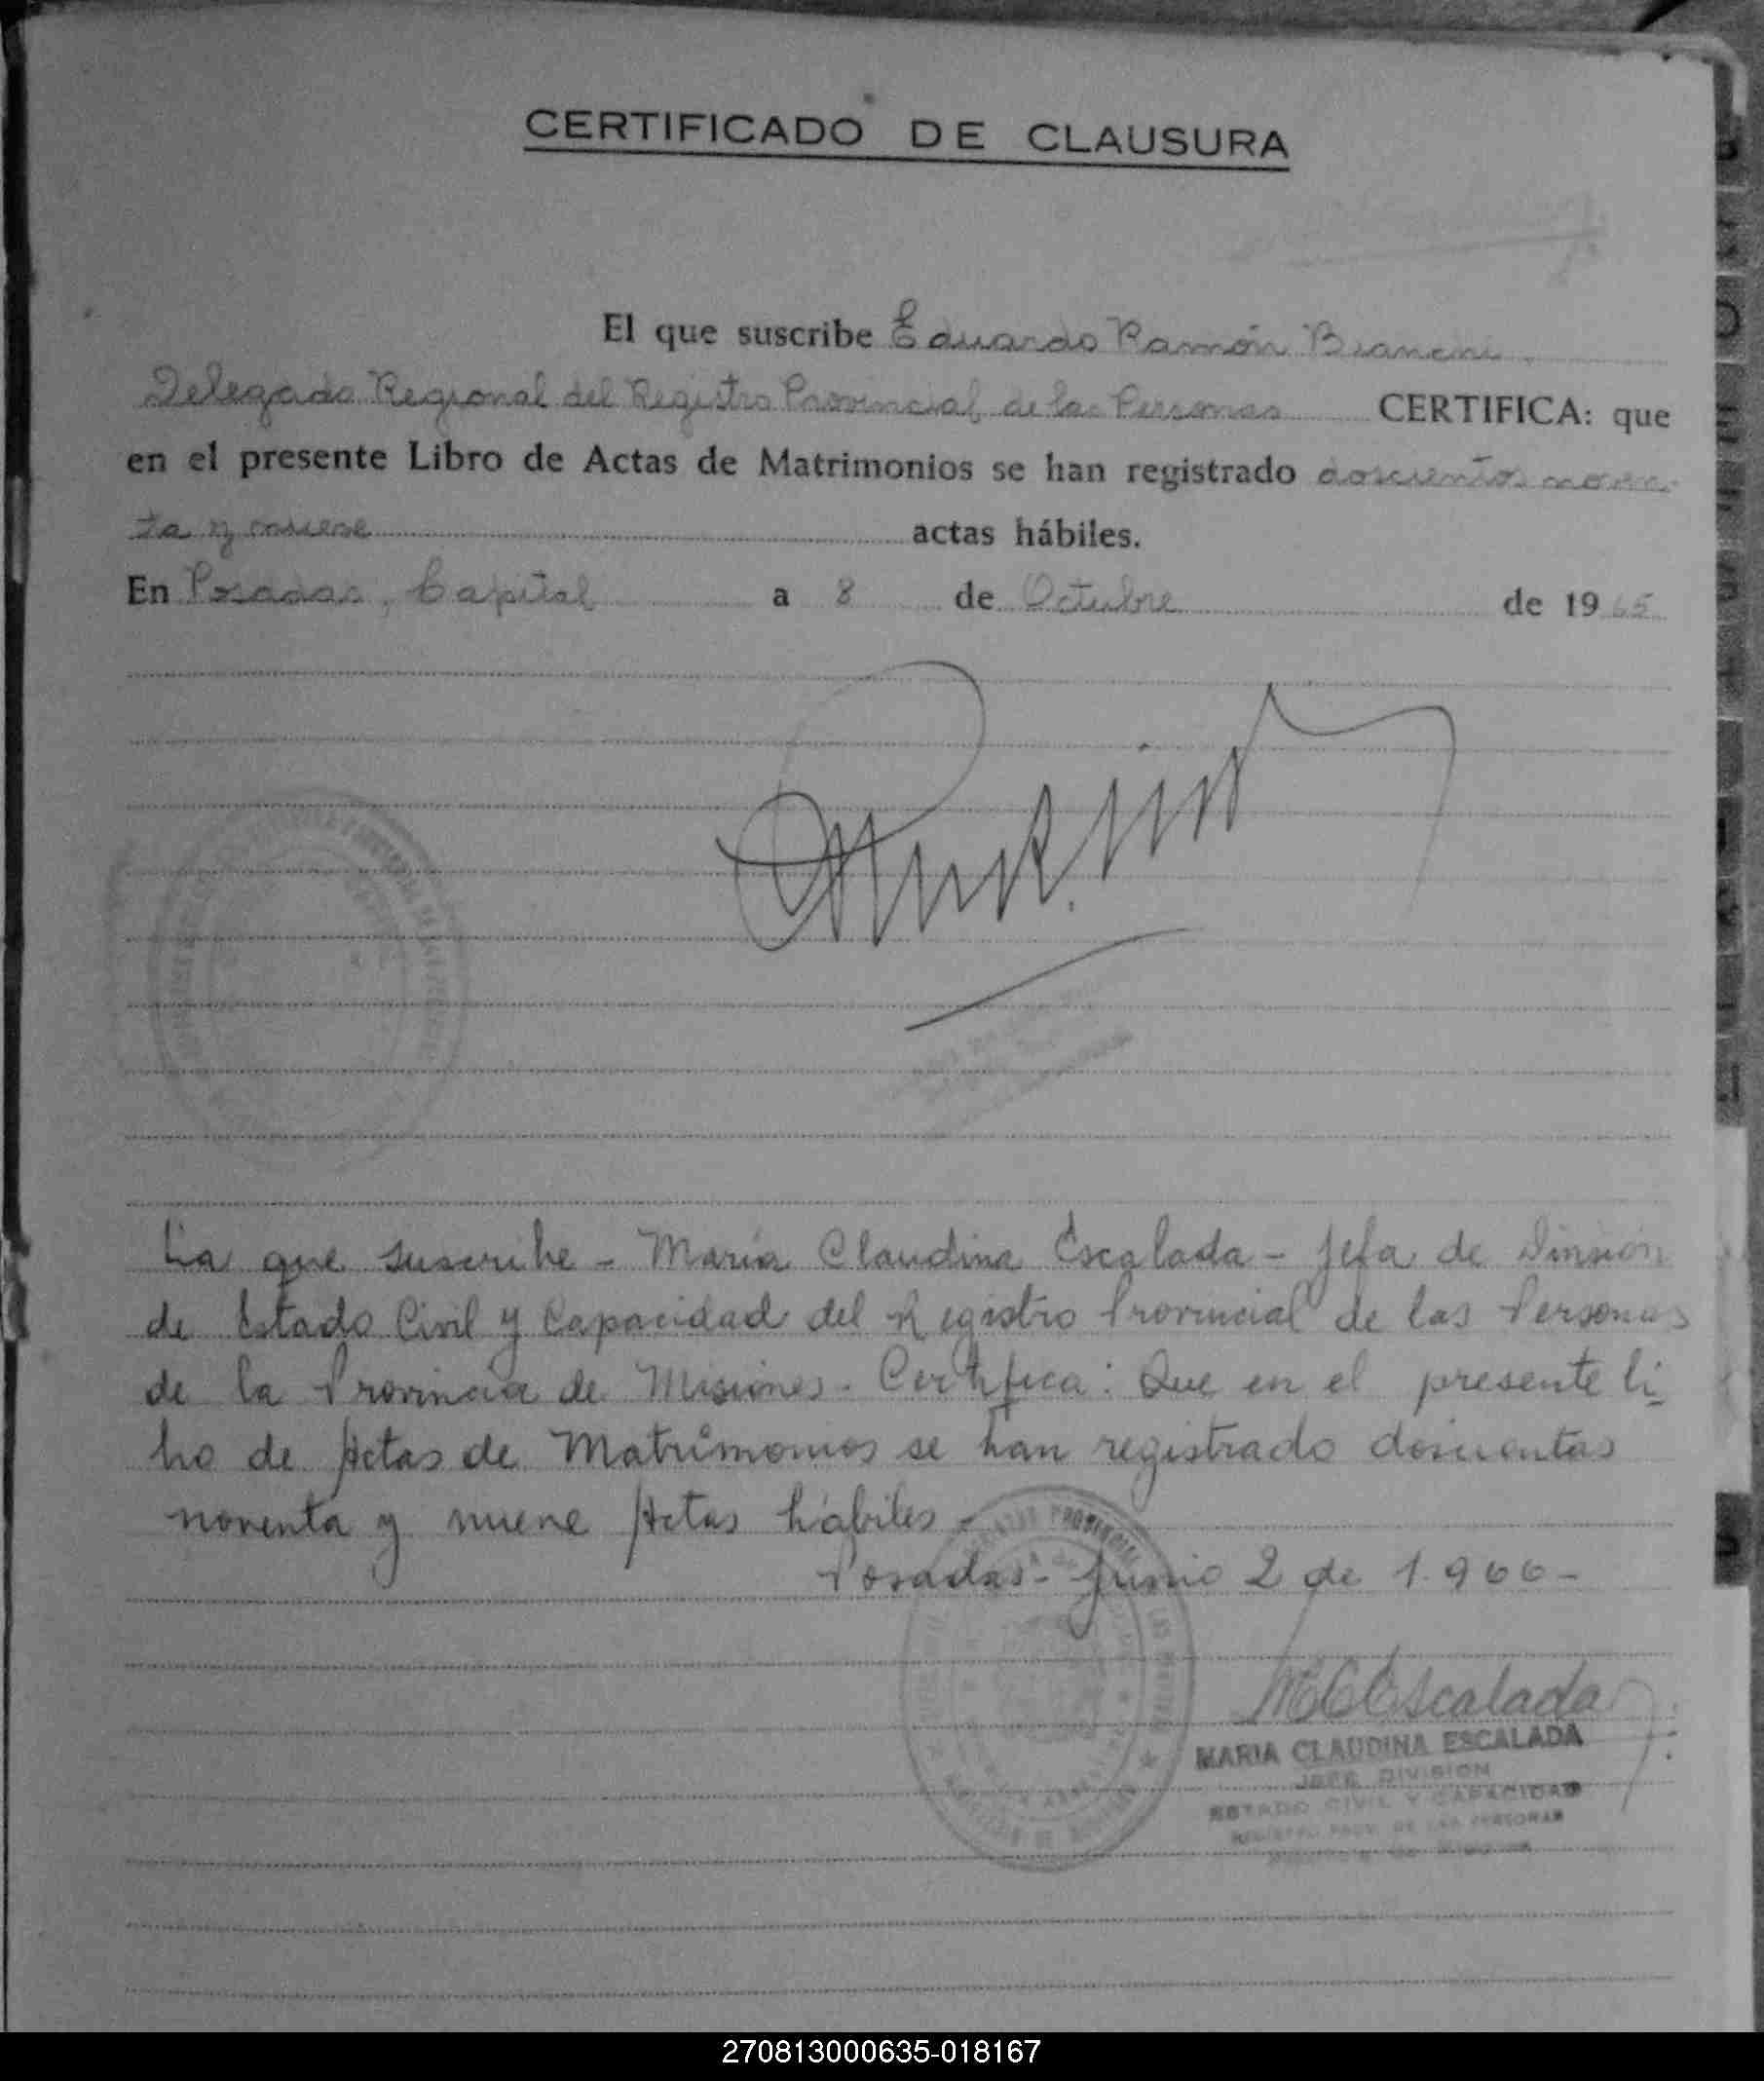 CERTIFICADO DE CLAUSURA
El que suscribe Eduardo Ramón Bianchi,
Delegado Regional del Registro Provincial de las Personas CERTIFICA: que
en el presente Libro de Actas de Matrimonios se han registrado doscientos noven-
ta y nueve actas hábiles.
En Posadas, Capital a 8 de Octubre de 1965
La que suscribe - María Claudina Escalada - Jefa de División
de Estado Civil y Capacidad del Registro Provincial de las Personas
de la Provincia de Misiones - Certifica: Que en el presente li-
bro de Actas de Matrimonios se han registrado doscientas
noventa y nueve Actas hábiles -
Posadas - Junio 2 de 1.966 -
MCEscalada
MARIA CLAUDINA ESCALADA
JEFE DIVISION
ESTADO CIVIL Y CAPACIDAD
REGISTRO PROV. DE LAS PERSONAS
270813000635-018167